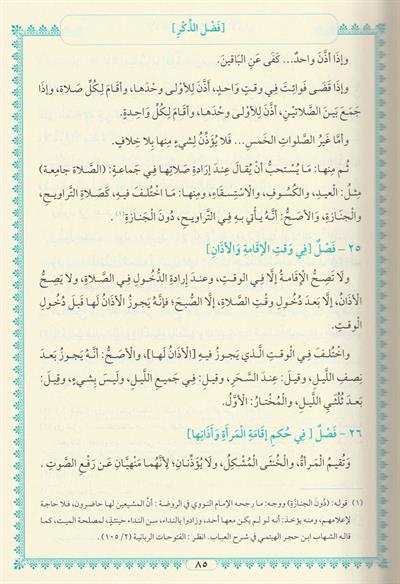 [فَضْل الذِّكْرِ]
وإذَا أَذَّنَ واحدٌ... كَفَى عَنِ البَاقينَ.
وإذَا قَضَى فَوائتَ في وقتٍ واحدٍ، أَذَّنَ لِلأُولى وحْدَها، وأقَامَ لِكُلِّ صلاةٍ، وإذَا
جَمَعَ بَينَ الصَّلاتَينِ، أَذَّنَ لِلأُولىٰ وحْدَها، وأقَامَ لِكُلِّ واحِدةٍ.
وأمَّا غَيرُ الصَّلواتِ الخَمسِ... فَلا يُؤَذَّنُ لِشيءٍ مِنها بِلا خِلافٍ.
ثُم مِنهـا: مَا يُستَحبُّ أنْ يُقالَ عندَ إرَادةِ صَلاتِها فِي جَماعةٍ: (الصَّلاة جَامعة)
مِثلُ: العيـدِ، والكُسُوفِ، والاستِسْقَاءِ، ومِنهـا: مَا اختُلفَ فِيه، كَصَلاةِ التَّراويحِ،
والجَنازَةِ، وَالأصَحُّ: أنَّـهُ يـأْتي بِـهِ فِي التَّراويـحِ، دُونَ الجَنازَةِ(١).
٢٥ - فَصْلٌ [فِي وَقتِ الْإِقَامةِ وَالأَذَانِ]
ولا تَصِحُّ الإقَامةُ إلَّا فِي الوقتِ، وعنـدَ إرادةِ الدُّخُولِ فِي الصَّلاةِ، ولا يَصِحُّ
الأذَانُ، إلَّا بَعدَ دُخُولِ وقْتِ الصَّلاةِ، إلَّا الصُّبحَ؛ فإنَّهُ يَجوزُ الأذَانُ لَها قَبلَ دُخُولِ
الوقتِ.
واختُلـفَ فِي الوقـتِ الَّـذي يَجـوزُ فيهِ [الأذَانُ لَهـا]، والأصَحُّ: أنَّـهُ يَجوزُ بَعدَ
نِصفِ اللَّيلِ، وقيلَ: عِنـدَ السَّحَرِ، وقيلَ: فِي جَميعِ اللَّيلِ، ولَيسَ بِشيءٍ، وقِيلَ:
بَعدَ ثُلُثَي اللَّيلِ، والمُخْتارُ: الأوَّلُ.
٢٦ - فَصْلٌ [ فِي حُكمِ إقَامَةِ المَرأةِ وَأَذَانِها]
وتُقيـمُ المَـرأةُ، والخُنثَى المُشْكِلُ، ولَا يُؤَذِّنانِ؛ لِأنَّهُما مَنْهيَّانِ عَن رَفْعِ الصَّوتِ.
(١) قوله: (دُونَ الجَنازَةِ) ووجه: ما رجحه الإمام النووي في الروضة : أنَّ المشيعين لها حاضرون، فلا حاجة
لإعلامهم، ومنه يؤخذ: أنه لو لم يكن معها أحد، وزادوا بالنداء، سن النداء حينئذٍ، لمصلحة الميت، كما
قاله الشهاب ابن حجر الهيتمي في شرح العباب. انظر: الفتوحات الربانية (٢/ ١٠٥).
٨٥